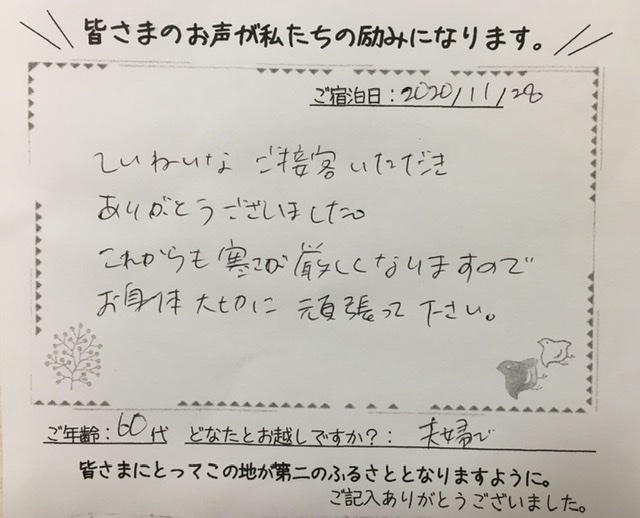 皆さまのお声が私たちの励みになります。
ご宿泊日：2020/11/28
ていねいな ご接客いただき
ありがとうございました。
これからも寒さが厳しくなりますので
お身体大切に頑張って下さい。
ご年齢：60代 どなたとお越しですか？： 夫婦で
皆さまにとってこの地が第二のふるさととなりますように。
ご記入ありがとうございました。